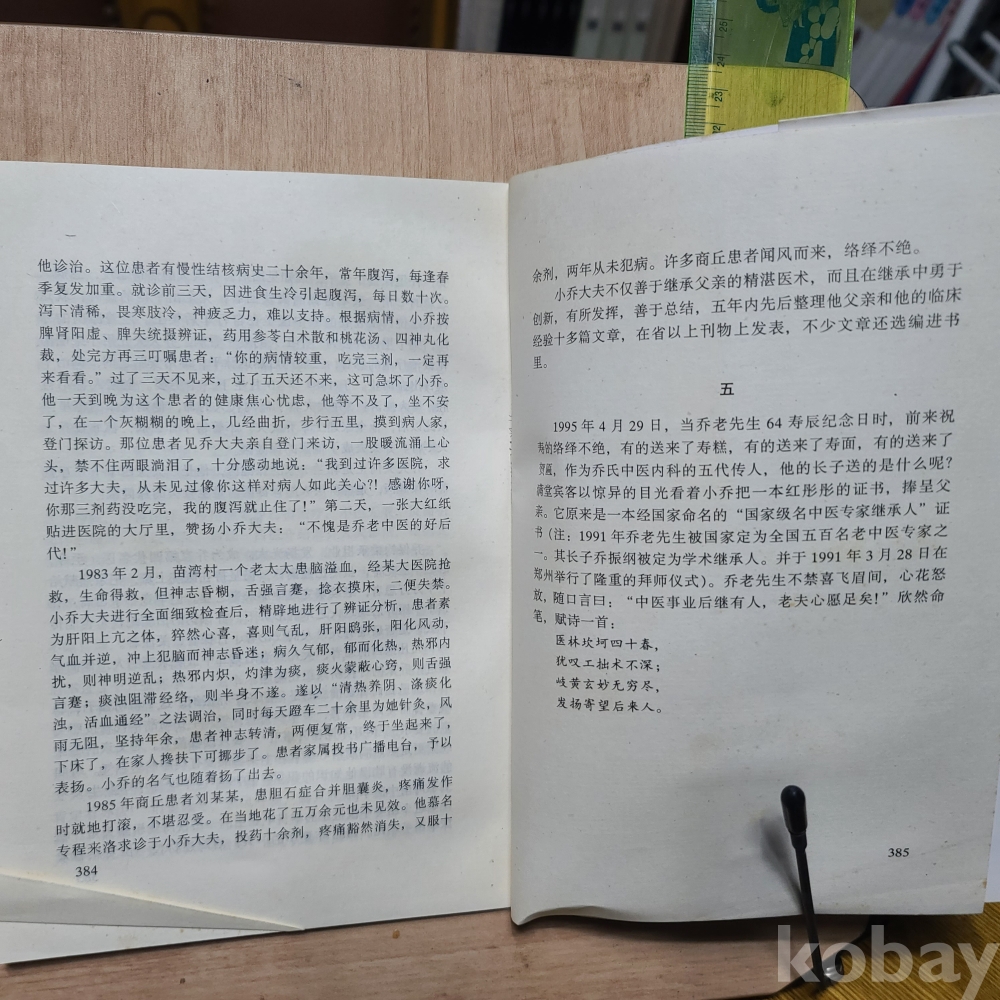 他诊治。这位患者有慢性结核病史二十余年，常年腹泻，每逢春
季复发加重。就诊前三天，因进食生冷引起腹泻，每日数十次。
泻下清稀，畏寒肢冷，神疲乏力，难以支持。根据病情，小乔按
脾肾阳虚、脾失统摄辨证，药用参苓白术散和桃花汤、四神丸化
裁，处完方再三叮嘱患者：“你的病情较重，吃完三剂，一定再
来看看。”过了三天不见来，过了五天还不来，这可急坏了小乔。
他一天到晚为这个患者的健康焦心忧虑，他等不及了，坐不安
了，在一个灰糊糊的晚上，几经曲折，步行五里，摸到病人家，
登门探访。那位患者见乔大夫亲自登门来访，一股暖流涌上心
头，禁不住两眼淌泪了，十分感动地说：“我到过许多医院，求
过许多大夫，从未见过像你这样对病人如此关心?！感谢你呀，
你那三剂药没吃完，我的腹泻就止住了！”第二天，一张大红纸
贴进医院的大厅里，赞扬小乔大夫：“不愧是乔老中医的好后
代！”
1983年2月，苗湾村一个老太太患脑溢血，经某大医院抢
救，生命得救，但神志昏糊，舌强言蹇，捻衣摸床，二便失禁。
小乔大夫进行全面细致检查后，精辟地进行了辨证分析，患者素
为肝阳上亢之体，猝然心喜，喜则气乱，肝阳鸱张，阳化风动，
气血并逆，冲上犯脑而神志昏迷；病久气郁，郁而化热，热邪内
扰，则神明逆乱；热邪内炽，灼津为痰，痰火蒙蔽心窍，则舌强
言蹇；痰浊阻滞经络，则半身不遂。遂以“清热养阴、涤痰化
浊，活血通经”之法调治，同时每天蹬车二十余里为她针灸，风
雨无阻，坚持年余，患者神志转清，两便复常，终于坐起来了，
下床了，在家人搀扶下可挪步了。患者家属投书广播电台，予以
表扬。小乔的名气也随着扬了出去。
1985年商丘患者刘某某，患胆石症合并胆囊炎，疼痛发作
时就地打滚，不堪忍受。在当地花了五万余元也未见效。他慕名
专程来洛求诊于小乔大夫，投药十余剂，疼痛豁然消失，又服十
384
余剂，两年从未犯病。许多商丘患者闻风而来，络绎不绝。
小乔大夫不仅善于继承父亲的精湛医术，而且在继承中勇于
创新，有所发挥，善于总结，五年内先后整理他父亲和他的临床
经验十多篇文章，在省以上刊物上发表，不少文章还选编进书
里。
五
1995年4月29日，当乔老先生64寿辰纪念日时，前来祝
寿的络绎不绝，有的送来了寿糕，有的送来了寿面，有的送来了
贺匾，作为乔氏中医内科的五代传人，他的长子送的是什么呢？
满堂宾客以惊异的目光看着小乔把一本红彤彤的证书，捧呈父
亲。它原来是一本经国家命名的“国家级名中医专家继承人”证
书（注：1991年乔老先生被国家定为全国五百名老中医专家之
一。其长子乔振纲被定为学术继承人。并于1991年3月28日在
郑州举行了隆重的拜师仪式）。乔老先生不禁喜飞眉间，心花怒
放，随口言曰：“中医事业后继有人，老夫心愿足矣！”欣然命
笔，赋诗一首：
医林坎坷四十春，
犹叹工拙术不深；
岐黄玄妙无穷尽，
发扬寄望后来人。
385
25
24
23
22
kobay